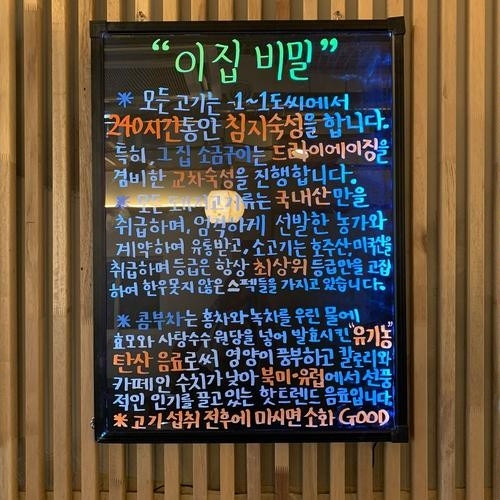 “이집 비밀”
* 모든고기는 -1~1도씨에서
240시간동안 침지숙성을 합니다.
특히, 그집 소금구이는 드라이에이징을
겸비한 교차숙성을 진행합니다.
* 모든 돼지고기류는 국내산만을
취급하며, 엄격하게 선발한 농가와
계약하여 유통받고, 소고기는 호주산, 미국산을
취급하며 등급은 항상 최상위 등급만을 고집
하여 한우못지 않은 스펙들을 가지고 있습니다.
* 콤부차는 홍차와 녹차를 우린 물에
효모와 사탕수수 원당을 넣어 발효시킨 "유기농"
탄산 음료로써 영양이 풍부하고 칼로리와
카페인 수치가 낮아 북미·유럽에서 선풍
적인 인기를 끌고 있는 핫트렌드 음료입니다.
* 고기 섭취 전후에 마시면 소화 GOOD